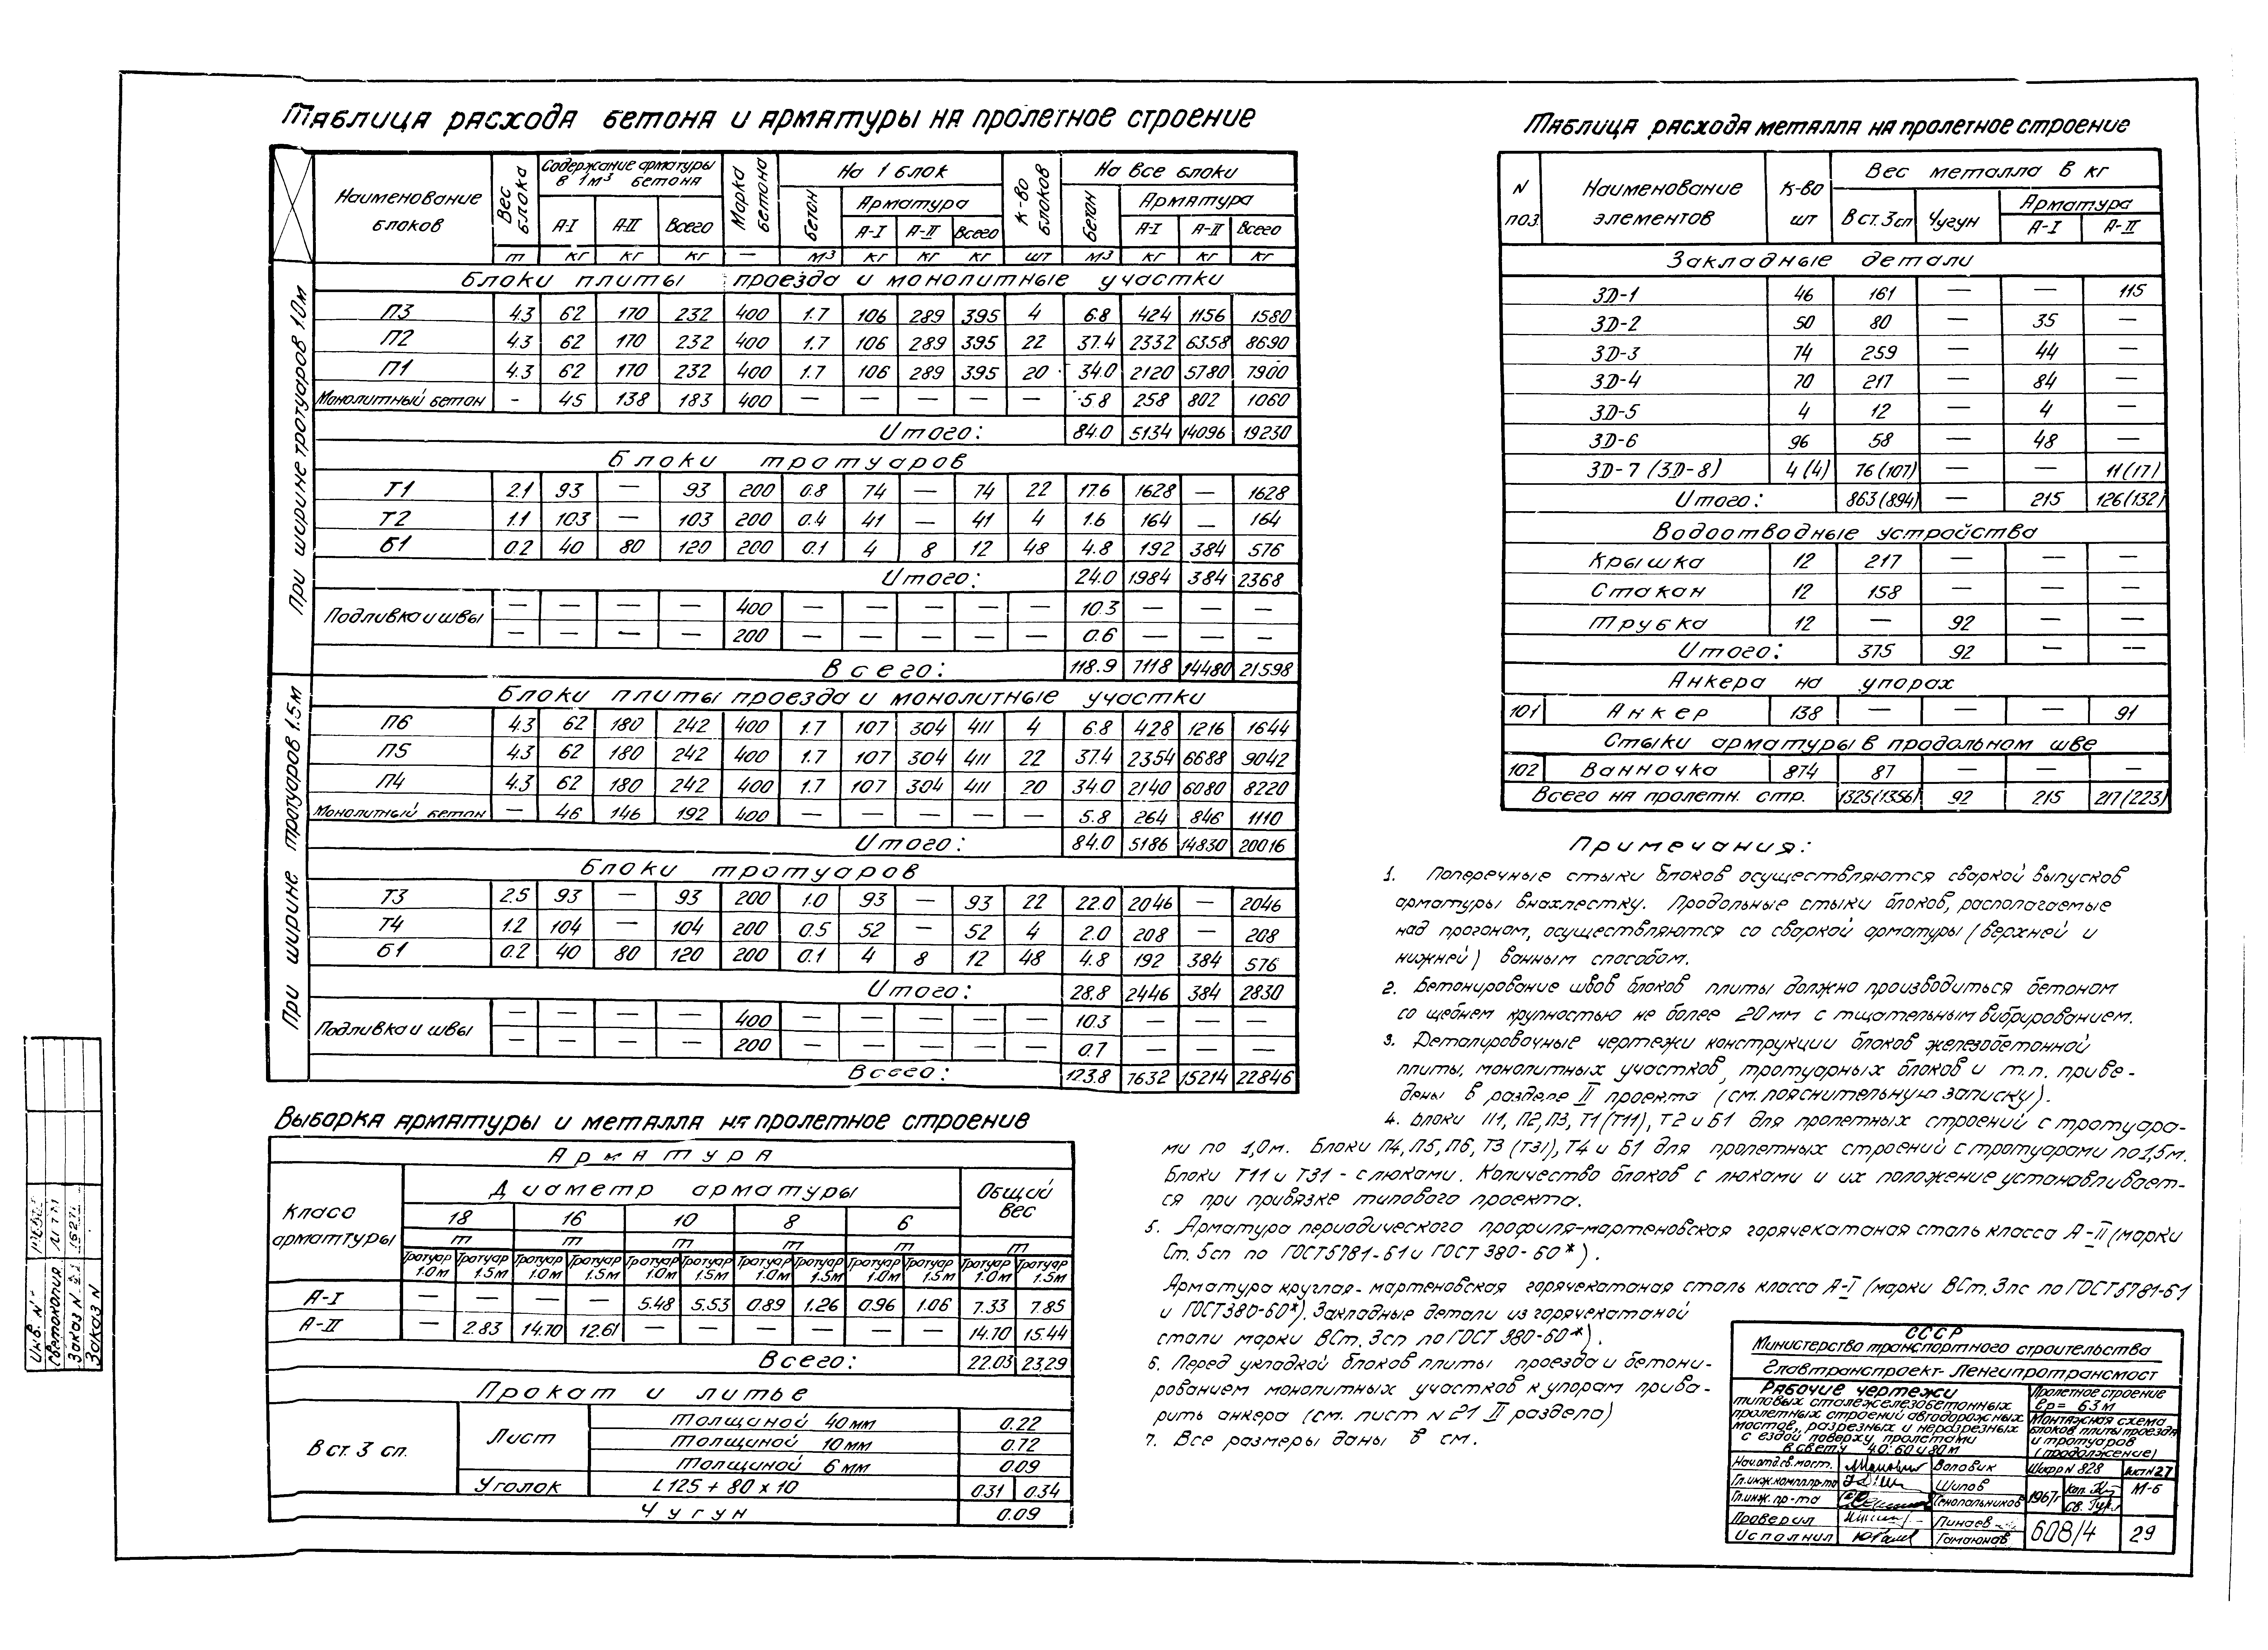 Таблица расхода бетона и арматуры на пролетное строение
Наименование блоков | Вес блока | Содержание арматуры в 1м³ бетона | Марка бетона | На 1 блок | К-во блоков | На все блоки
А-I | А-II | Всего | Бетон | Арматура | Бетон | Арматура
А-I | А-II | Всего | А-I | А-II | Всего
т | кг | кг | кг | — | м³ | кг | кг | кг | шт | м³ | кг | кг | кг
При ширине тротуаров 1.0м
Блоки плиты проезда и монолитные участки
П3 | 4.3 | 62 | 170 | 232 | 400 | 1.7 | 106 | 289 | 395 | 4 | 6.8 | 424 | 1156 | 1580
П2 | 4.3 | 62 | 170 | 232 | 400 | 1.7 | 106 | 289 | 395 | 22 | 37.4 | 2332 | 6358 | 8690
П1 | 4.3 | 62 | 170 | 232 | 400 | 1.7 | 106 | 289 | 395 | 20 | 34.0 | 2120 | 5780 | 7900
Монолитный бетон | - | 45 | 138 | 183 | 400 | — | — | — | — | — | 5.8 | 258 | 802 | 1060
Итого: | 84.0 | 5134 | 14096 | 19230
Блоки тротуаров
Т1 | 2.1 | 93 | — | 93 | 200 | 0.8 | 74 | — | 74 | 22 | 17.6 | 1628 | — | 1628
Т2 | 1.1 | 103 | — | 103 | 200 | 0.4 | 41 | — | 41 | 4 | 1.6 | 164 | — | 164
Б1 | 0.2 | 40 | 80 | 120 | 200 | 0.1 | 4 | 8 | 12 | 48 | 4.8 | 192 | 384 | 576
Итого: | 24.0 | 1984 | 384 | 2368
Подливка и швы | — | — | — | — | 400 | — | — | — | — | — | 10.3 | — | — | —
— | — | — | — | 200 | — | — | — | — | — | 0.6 | — | — | —
Всего: | 118.9 | 7118 | 14480 | 21598
При ширине тротуаров 1.5м
Блоки плиты проезда и монолитные участки
П6 | 4.3 | 62 | 180 | 242 | 400 | 1.7 | 107 | 304 | 411 | 4 | 6.8 | 428 | 1216 | 1644
П5 | 4.3 | 62 | 180 | 242 | 400 | 1.7 | 107 | 304 | 411 | 22 | 37.4 | 2354 | 6688 | 9042
П4 | 4.3 | 62 | 180 | 242 | 400 | 1.7 | 107 | 304 | 411 | 20 | 34.0 | 2140 | 6080 | 8220
Монолитный бетон | — | 46 | 146 | 192 | 400 | — | — | — | — | — | 5.8 | 264 | 846 | 1110
Итого: | 84.0 | 5186 | 14830 | 20016
Блоки тротуаров
Т3 | 2.5 | 93 | — | 93 | 200 | 1.0 | 93 | — | 93 | 22 | 22.0 | 2046 | — | 2046
Т4 | 1.2 | 104 | — | 104 | 200 | 0.5 | 52 | — | 52 | 4 | 2.0 | 208 | — | 208
Б1 | 0.2 | 40 | 80 | 120 | 200 | 0.1 | 4 | 8 | 12 | 48 | 4.8 | 192 | 384 | 576
Итого: | 28.8 | 2446 | 384 | 2830
Подливка и швы | — | — | — | — | 400 | — | — | — | — | — | 10.3 | — | — | —
— | — | — | — | 200 | — | — | — | — | — | 0.7 | — | — | —
Всего: | 123.8 | 7632 | 15214 | 22846
Выборка арматуры и металла на пролетное строение
Арматура
Класс арматуры | Диаметр арматуры | Общий вес
18 | 16 | 10 | 8 | 6
т | т | т | т | т | т
Тротуар 1.0м | Тротуар 1.5м | Тротуар 1.0м | Тротуар 1.5м | Тротуар 1.0м | Тротуар 1.5м | Тротуар 1.0м | Тротуар 1.5м | Тротуар 1.0м | Тротуар 1.5м | Тротуар 1.0м | Тротуар 1.5м
А-I | — | — | — | — | 5.48 | 5.53 | 0.89 | 1.26 | 0.96 | 1.06 | 7.33 | 7.85
А-II | — | 2.83 | 14.70 | 12.61 | — | — | — | — | — | — | 14.70 | 15.44
Всего: | 22.03 | 23.29
Прокат и литье
В ст. 3 сп. | Лист | Толщиной 40мм | 0.22
Толщиной 10мм | 0.72
Толщиной 6мм | 0.09
Уголок | L125 + 80 × 10 | 0.31 | 0.34
Чугун | 0.09
Таблица расхода металла на пролетное строение
N поз. | Наименование элементов | К-во шт | Вес металла в кг
В ст. 3 сп | Чугун | Арматура
А-I | А-II
Закладные детали
ЗД-1 | 46 | 161 | — | — | 115
ЗД-2 | 50 | 80 | — | 35 | —
ЗД-3 | 74 | 259 | — | 44 | —
ЗД-4 | 70 | 217 | — | 84 | —
ЗД-5 | 4 | 12 | — | 4 | —
ЗД-6 | 96 | 58 | — | 48 | —
ЗД-7 (ЗД-8) | 4 (4) | 76 (107) | — | — | 11 (17)
Итого: | 863 (894) | — | 215 | 126 (132)
Водоотводные устройства
Крышка | 12 | 217 | — | — | —
Стакан | 12 | 158 | — | — | —
Трубка | 12 | — | 92 | — | —
Итого: | 375 | 92 | — | —
Анкера на упорах
101 | Анкер | 138 | — | — | — | 91
Стыки арматуры в продольном шве
102 | Ванночка | 874 | 87 | — | — | —
Всего на пролетн. стр. | 1325 (1356) | 92 | 215 | 217 (223)
Примечания:
1. Поперечные стыки блоков осуществляются сваркой выпусков
арматуры внахлестку. Продольные стыки блоков, располагаемые
над прогоном, осуществляются со сваркой арматуры (верхней и
нижней) ванным способом.
2. Бетонирование швов блоков плиты должно производиться бетоном
со щебнем крупностью не более 20мм с тщательным вибрированием.
3. Деталировочные чертежи конструкции блоков железобетонной
плиты, монолитных участков, тротуарных блоков и т.п. приве-
дены в разделе II проекта (см. пояснительную записку).
4. Блоки П1, П2, П3, Т1 (Т11), Т2 и Б1 для пролетных строений с тротуара-
ми по 1,0м. Блоки П4, П5, П6, Т3 (Т31), Т4 и Б1 для пролетных строений с тротуарами по 1,5м.
Блоки Т11 и Т31 - с люками. Количество блоков с люками и их положение устанавливает-
ся при привязке типового проекта.
5. Арматура периодического профиля-мартеновская горячекатаная сталь класса А-II (марки
Ст. 5сп по ГОСТ 5781-61 и ГОСТ 380-60*).
Арматура круглая-мартеновская горячекатаная сталь класса А-I (марки ВСт. 3пс по ГОСТ 5781-61
и ГОСТ 380-60*). Закладные детали из горячекатаной
стали марки ВСт. 3сп по ГОСТ 380-60*).
6. Перед укладкой блоков плиты проезда и бетони-
рованием монолитных участков к упорам прива-
рить анкера (см. лист N 21 II раздела)
7. Все размеры даны в см.
СССР
Министерство транспортного строительства
Главтранспроект - Ленгипротрансмост
Рабочие чертежи
типовых сталежелезобетонных
пролетных строений автодорожных
мостов, разрезных и неразрезных
с ездой поверху пролетами
в свету 40; 60 и 80м
Пролетное строение
ℓр = 63м
Монтажная схема
блоков плиты проезда
и тротуаров
(продолжение)
Нач.отд.св.мост. | Воловик | Шифр N 828 | Лист N 27
Гл.инж.компл.пр-та | Шипов | 1967г | М-б
Гл.инж. пр-та
Проверил | Пинаев | 608/4 | 29
Исполнил
Инв. N
Светокопия
Заказ N
Заказ N